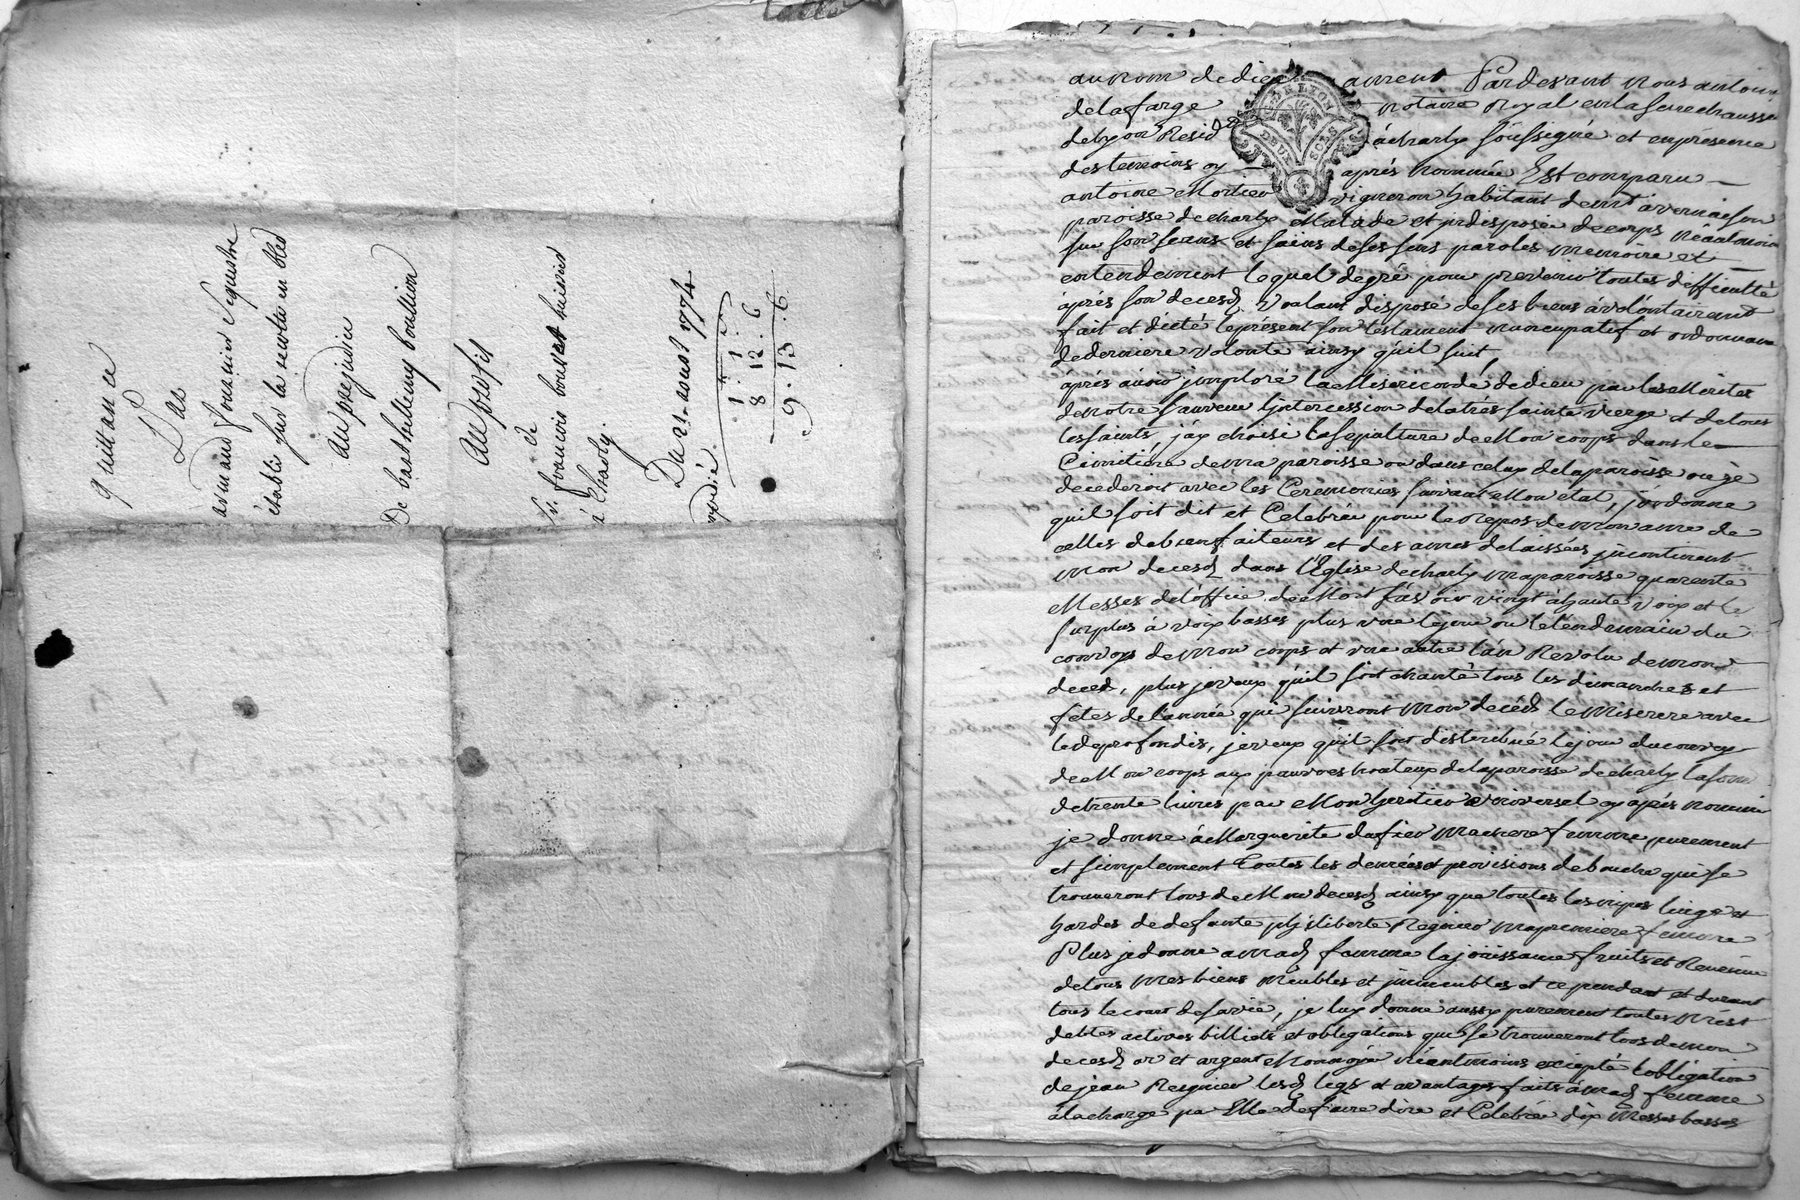 quittance
Par
armand fournier sequestre
établi sur la recolte en bled
au prejudice
De barthellemy boullion
Au proffit
de
Sr. françois boullat huissier
à Charly.
Du 21. aoust 1774
1. 1.
8. 12. 6
9. 13. 6.
GEN. DE LYON
DEUX SOLS
au nom de dieu amen Pardevant nous antoine
delafarge notaire Royal en la senechaussée
de lyon Resid.t à charly soussigné et en présence
des temoins cy après nommés Est comparu
antoine Mortier vigneron habitant de
paroisse de charly Malade et indisposé de corps néantmoins
sur son seans et sains de ses sens paroles memoire et
entendement lequel de gré pour prevenir toutes difficultés
après son decesd. voulant disposé de ses biens à volontairement
fait et dicté le présent son testament nuncupatif et ordonnance
de derniere volonté ainsy qu'il suit,
après avoir imploré la Misericorde de dieu par les Mérites
de notre sauveur l'intercession de la très sainte vierge et de tous
les saints, j'ay choisi la sepulture de Mon corps dans le
Cimitiere de ma paroisse ou dans celuy de la paroisse ou je
decederoit avec les Ceremonies suivant Mon etat, j'ordonne
quil soit dit et Celebrée pour le Repos de mon ame de
celles de bienfaiteurs et des ames delaissées incontinent
mon decesd dans l'Eglise de charly ma paroisse quarente
Messes de l'office de Mort sçavoir vingt à haute voix et le
surplus à voix basses plus une le jour ou le lendemain du
convoy de mon corps et une autre l'an Revolu de mon
deced, plus je veux qu'il soit chanté tous les dimanches et
fetes de l'année qui suivront mon décéd le Miserere avec
le deprofondis, je veux quil soit distribué le jour du convoy
de Mon corps aux pauvres honteux de la paroisse de charly la somme
de trente livres par Mon heritier universel cy après nommé
je donne à Marguerite femme purement
et simplement Toutes les denrées et provisions de bouche qui se
trouveront lors de Mon decesd ainsy que toutes les nipes linge et
hardes de defunte philiberte Regnier ma premiere femme
Plus je donne a mad. femme la jouissance fruits et Revenus
de tous mes biens meubles et immeubles et ce pendant et durant
tous le cour de sa vie, je luy donne aussy purement toutes mes
debtes actives billiets et obligations qui se trouveront lors de mon
decesd or et argent Monnoyé néantmoins excepté l'obligation
de jean Regnier lesd. legs et aventages faits à mad. femme
à la charge par Elle de faire dire et Celebrée dix Messes basses